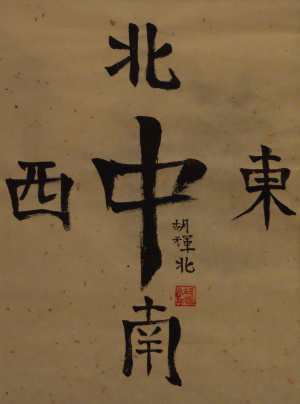 北
西 中 東
胡
北
南